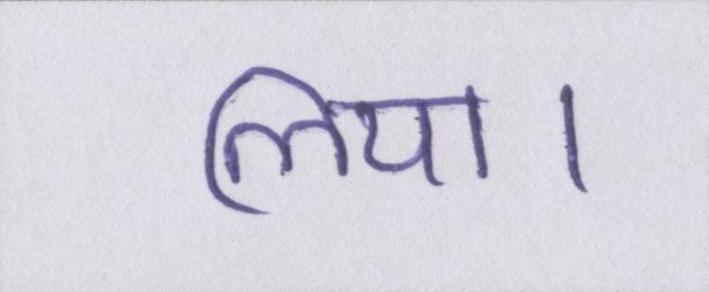 लिया।